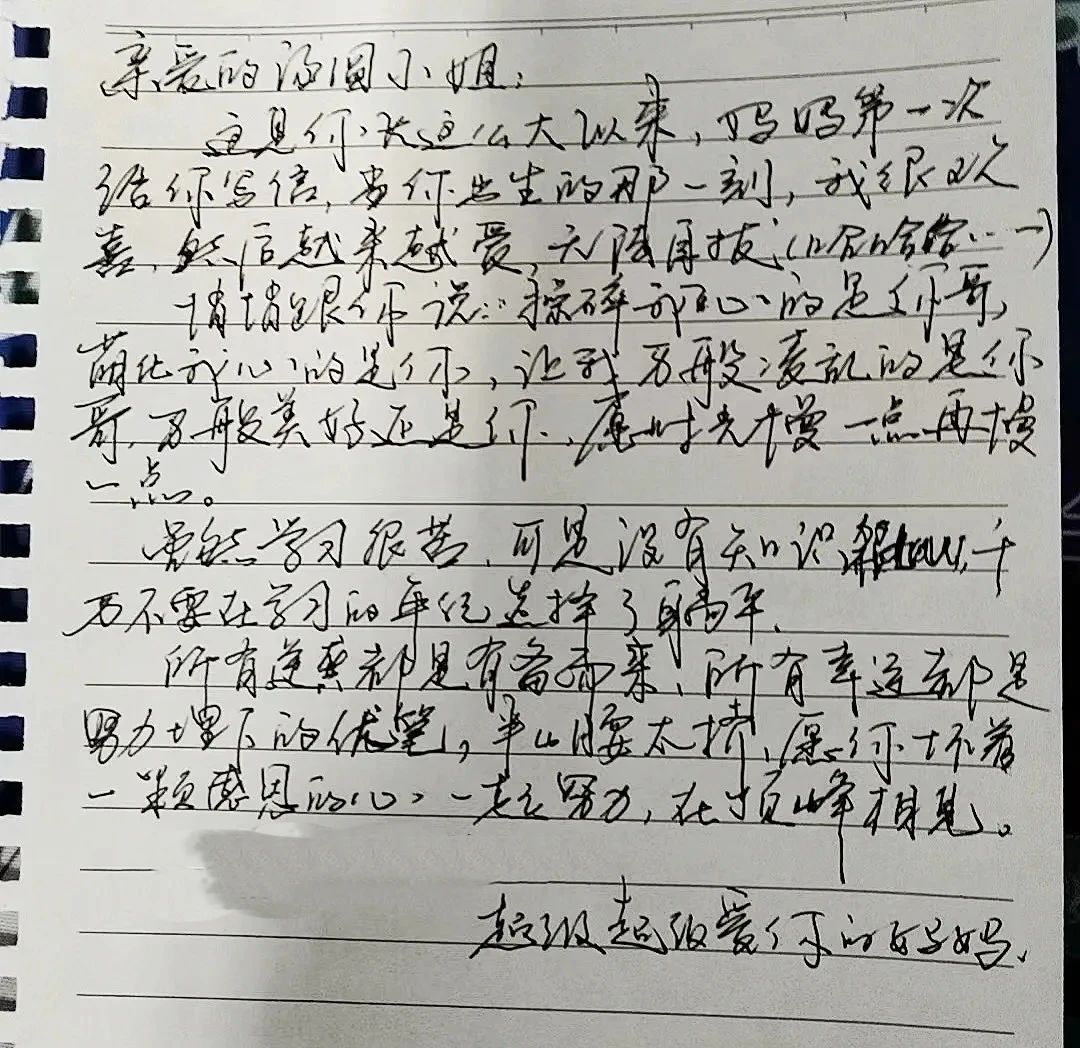 亲爱的汤圆小姐：
这是你长这么大以来，妈妈第一次
给你写信，当你出生的那一刻，我很欢
喜，然后越来越爱，无法自拔，（哈哈哈……）
悄悄跟你说：操碎我心的是你哥，
萌化我心的是你，让我万般凌乱的是你
哥，万般美好还是你，愿时光慢一点再慢
一点。
虽然学习很苦，可是没有知识，千
万不要在学习的年纪选择了躺平，
所有逆袭都是有备而来，所有幸运都是
努力埋下的优笔，半山腰太挤，愿你怀着
一颗感恩的心，一起努力，在顶峰相见。
超级超级爱你的妈妈，